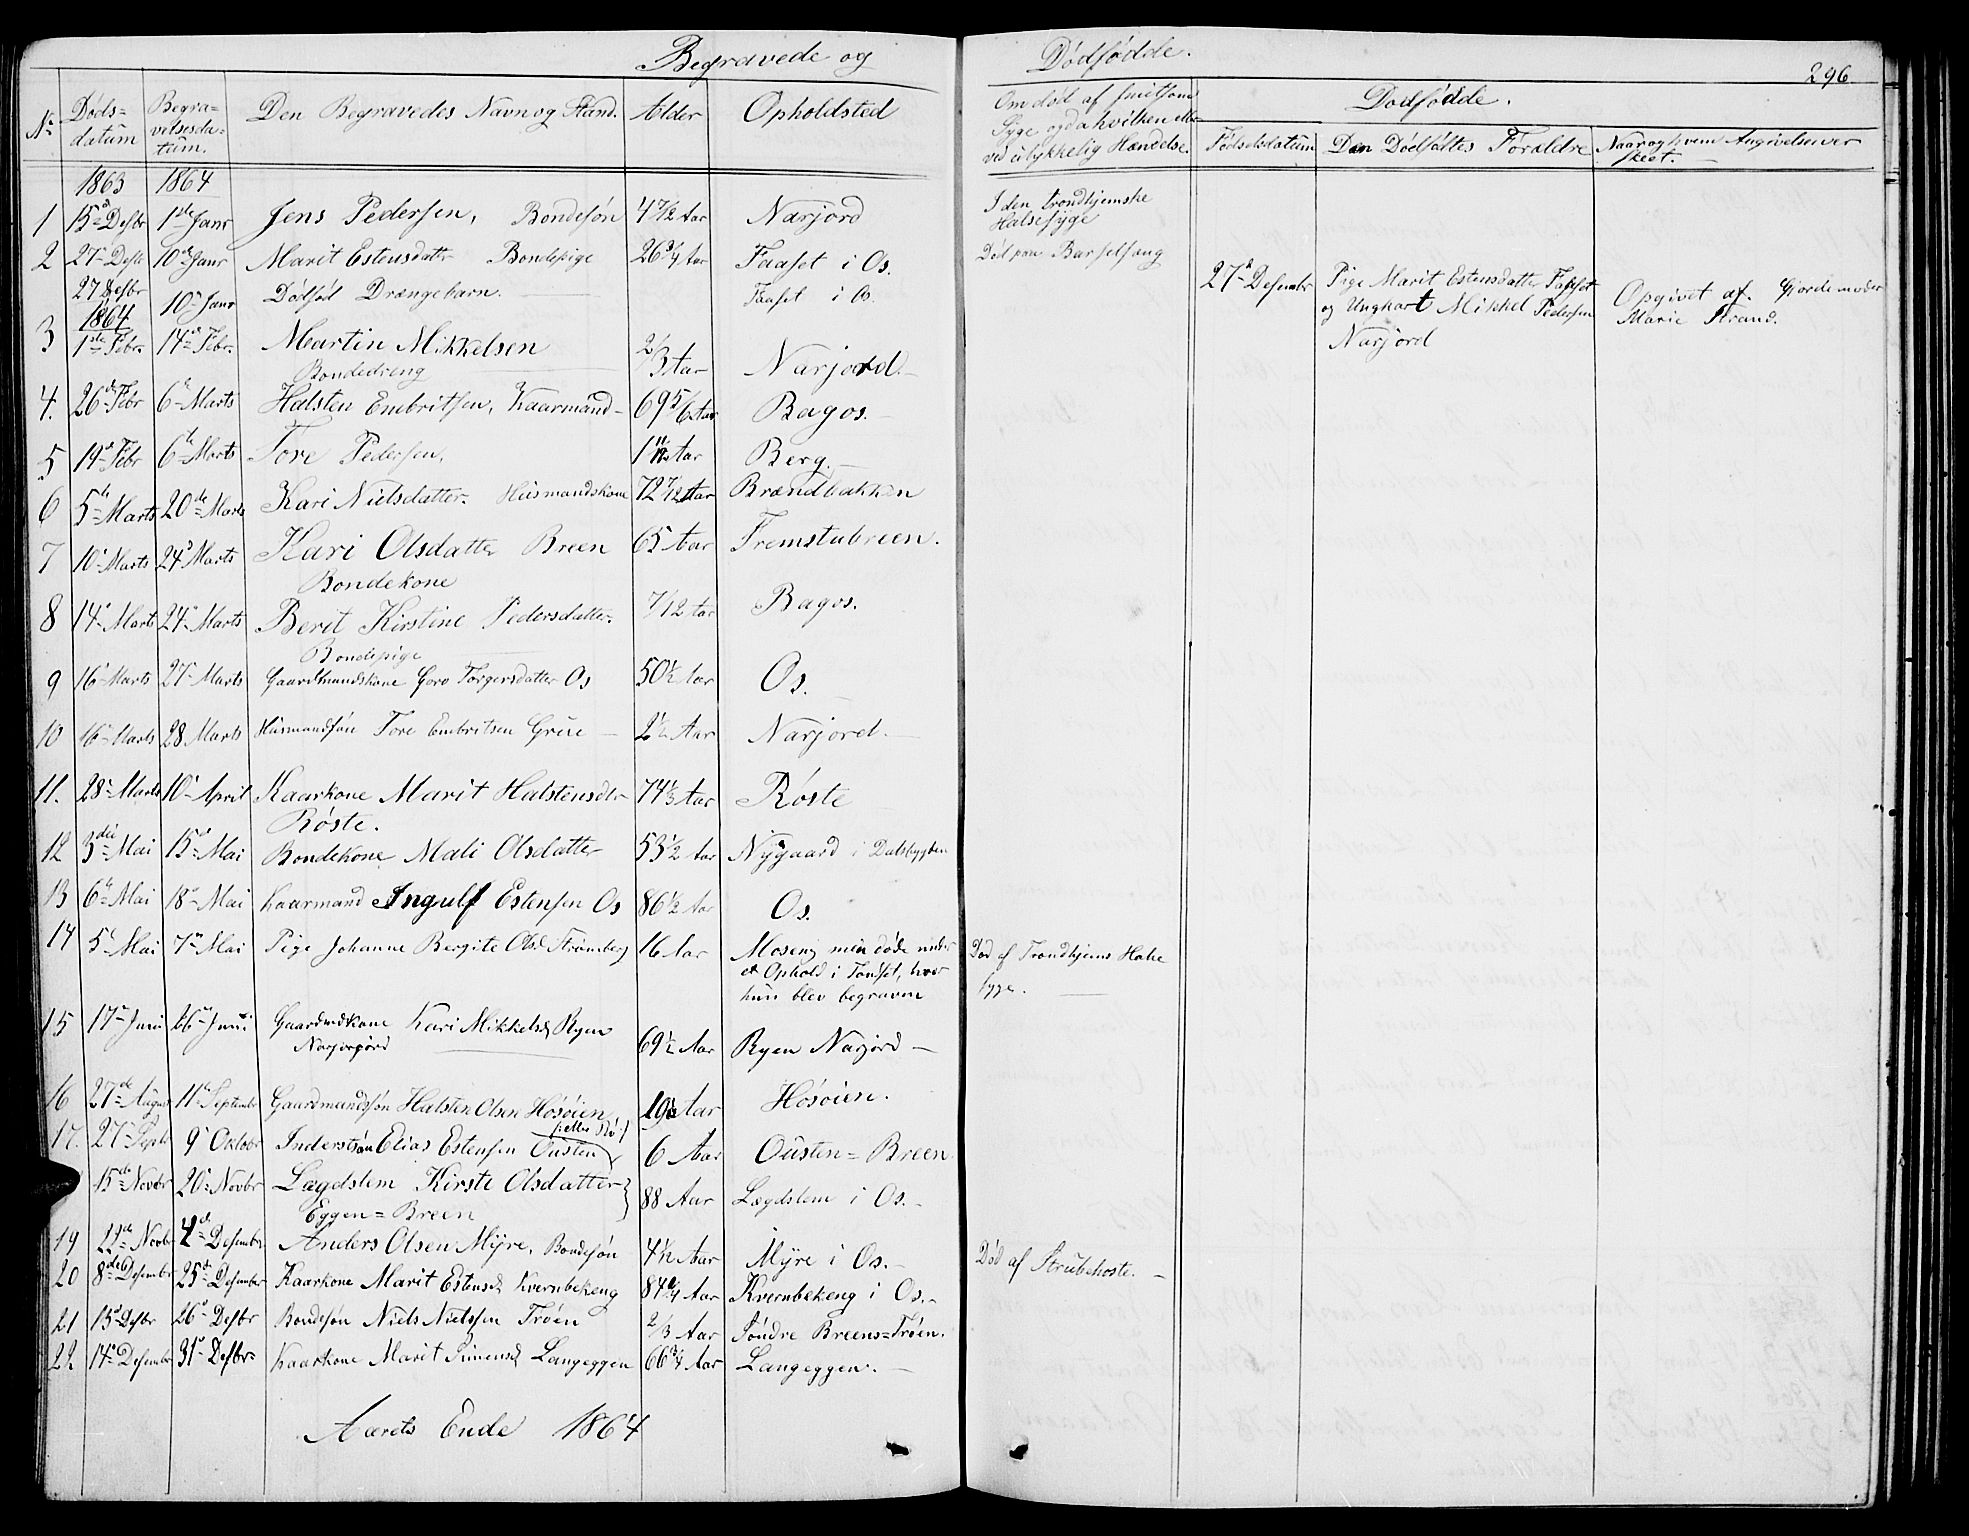 Begravede og Dødfødde.
296
No Døds= datum Begra= velsesda= tum. Den Begravedes Navn og Stand. Alder Opholdsted Om død af smitsom Syge og da hvilken eller ved ulykkelig Hændelse. Dødfødde.
Fødselsdatum Den Dødfødtes Forældre Naar og hvem Angivelsen er skeet.
1863 1864
1 15d Desbr 1ste Janr Jens Pedersen, Bondesøn 4 7/12 Aar Narjord I den trondhjemske Halsesyge
2 27- Desbr 10de Janr Marit Estensdatter Bondepige 26 3/4 Aar Faaset i Os. Død paa Barselseng
27 Desbr 10- Janr Dødfød Drængebarn. Faaset i Os. 27d Desembr Pige Marit Estensdatter Faaset og Ungkarl Mikkel Pedersen Narjord Opgivet af Gjordemoder Marie Strand.
1864
3 1ste Febr. 14- Febr. Martin Mikkelsen 2/3 Aar Narjord.-
Bondedreng
4. 26d Febr 6- Marts Halsten Embritsen, Kaarmand- 69 5/6 Aar Bagos.
5 19d Febr 6te Marts Tore Pedersen. 1 11/12 Aar Berg.
6 5te Marts 20de Marts Kari Nielsdatter. Husmandskone 72 7/12 Aar Brændbakken
7 10- Marts 24d Marts Kari Olsdatter Breen 65 Aar Fremstubreen.
Bondekone
8 14- Marts 24- Marts Berit Kirstine Pedersdatter. 7/12 Aar Bagos.
Bondepige
9 16- Marts 27- Marts Gaardmandskone Goro Torgersdatter Os 50 1/2 Aar Os.
10 16- Marts 28 Marts Husmandsøn Tore Embritsen Grue - 2 1/2 Aar Narjord.
11. 28- Marts 10- April Kaarkone Marit Halstensdtr 74 1/3 Aar Røste
Røste.
12 3die Mai 15d Mai Bondekone Mali Olsdatter 53 1/2 Aar Nygaard i Dalsbygden
13 6te Mai 18- Mai Kaarmand Ingulf Estensen Os 86 1/2 Aar Os.
14 5te Mai 7- Mai Pige Johanne Bergite Olsd Strømberg 16 Aar Moseng men døde under et Ophold i Tønset, hvor hun blev begraven Død af Trondhjems Halse syge.
15 17- Juni 26- Juni Gaardmdkone Kari Mikkelsd Ryen 69 1/2 Aar Ryen Narjord -
16 27de August 11te September Gaardmandsøn Halsten Olsen Hösöien, 19 Aar Hösöien.
17. 27- Septb 9d Oktobr Inderstsøn Elias Estensen Ousten 6 Aar Ousten= Breen
15de Novbr 20- Novbr Lægdslem Kirsti Olsdatter 88 Aar Lægdslem i Os.-
Eggen= Breen
19 22de Novbr 4de Desembr Anders Olsen Myre, Bondesøn 4 1/2 Aar Myre i Os.- Død af Strubehoste. -
20 8de Desember 25de Desember Kaarkone Marit Estensd Kvernbekeng 84 1/4 Aar Kvernbekeng i Os.-
21 15d Desbr 26d Desbr Bondesøn Niels Nielsen Trøen 2/3 Aar Søndre Breens= Trøen.
22 14d Desember 31- Desbr- Kaarkone Marit Simensd Langeggen 66 3/4 Aar Langeggen. -
Aarets Ende 1864